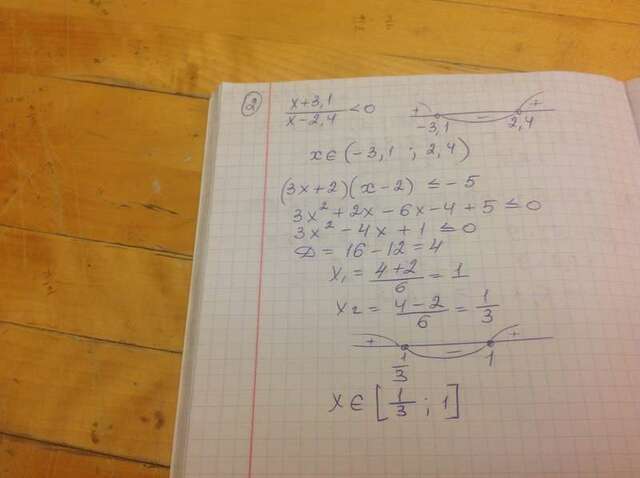 ② (x+3,1)/(x-2,4) <0
+ - +
-3,1 2,4
x∈(-3,1 ; 2,4)
(3x+2)(x-2) ≤ -5
3x² + 2x - 6x - 4 + 5 ≤ 0
3x² - 4x + 1 ≤ 0
D = 16 - 12 = 4
x₁ = (4+2)/6 = 1
x₂ = (4-2)/6 = 1/3
+ - +
1/3 1
x ∈ [1/3 ; 1]